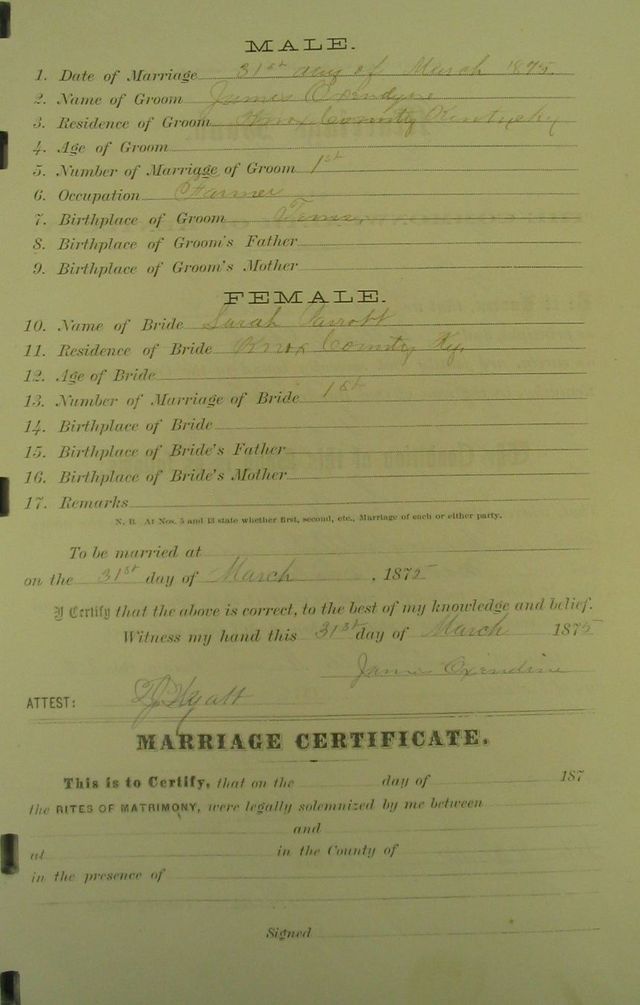 MALE.
1. Date of Marriage 31st day of March 1875.
2. Name of Groom James Oxendine
3. Residence of Groom Knox County Kentucky
4. Age of Groom
5. Number of Marriage of Groom 1st
6. Occupation Farmer
7. Birthplace of Groom Tenn.
8. Birthplace of Groom's Father
9. Birthplace of Groom's Mother
FEMALE.
10. Name of Bride Sarah Parrott
11. Residence of Bride Knox County Ky.
12. Age of Bride
13. Number of Marriage of Bride 1st
14. Birthplace of Bride
15. Birthplace of Bride's Father
16. Birthplace of Bride's Mother
17. Remarks
N. B. At Nos. 5 and 13 state whether first, second, etc., Marriage of each or either party.
To be married at
on the 31st day of March , 1875
I Certify that the above is correct, to the best of my knowledge and belief.
Witness my hand this 31st day of March 1875
James Oxendine
ATTEST: Hyatt
MARRIAGE CERTIFICATE.
This is to Certify, that on the day of 187
the RITES OF MATRIMONY, were legally solemnized by me between
and
at in the County of
in the presence of
Signed